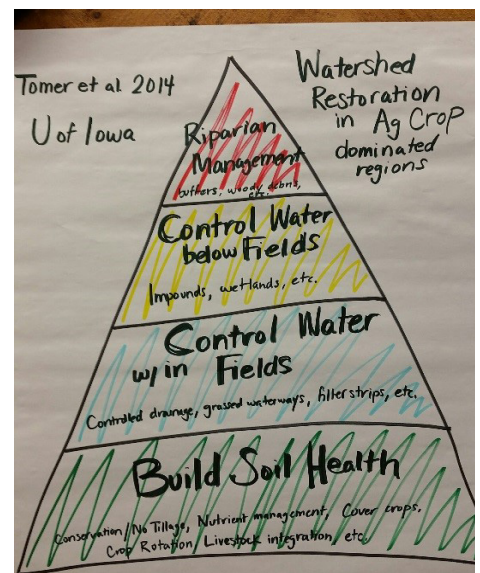 Tomer et al. 2014
U of Iowa
Watershed
Restoration
in Ag Crop
dominated
regions
Riparian
Management
buffers, woody debris,
etc.
Control Water
below Fields
Impounds, wetlands, etc.
Control Water
w/in Fields
Controlled drainage, grassed waterways, filter strips, etc.
Build Soil Health
Conservation/No Tillage, Nutrient management, Cover crops,
Crop Rotation, Livestock integration, etc.